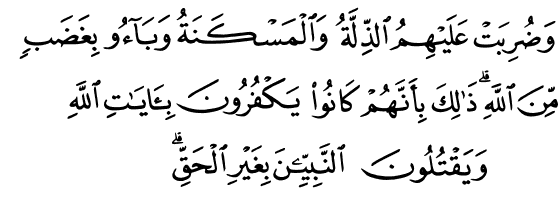 وَضُرِبَتْ عَلَيْهِمُ الذِّلَّةُ وَالْمَسْكَنَةُ وَبَآءُو بِغَضَبٍ
مِّنَ اللَّهِ ۗ ذَٰلِكَ بِأَنَّهُمْ كَانُوا۟ يَكْفُرُونَ بِـَٔايَـٰتِ اللَّهِ
وَيَقْتُلُونَ النَّبِيِّـۧنَ بِغَيْرِ الْحَقِّ ۗ